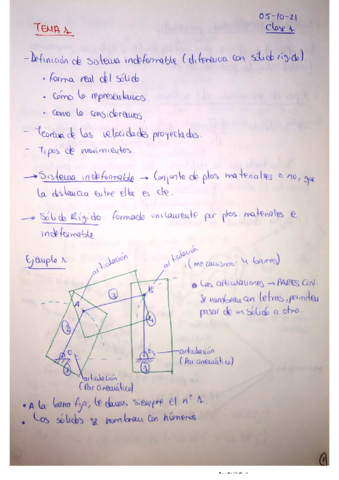 05-10-21
TEMA 1.
Clase 1
- Definición de sistema indeformable (diferencia con sólido rígido)
• forma real del sólido.
• cómo lo representamos
• como lo consideramos
- Teorema de las velocidades proyectadas.
- Tipos de movimientos.
→ Sistema indeformable → Conjunto de ptos materiales o no, que
la distancia entre ellos es cte.
→ Sólido Rígido: formado unicamente por ptos materiales e
indeformable
Ejemplo 1
articulación
articulación
(mecanismo: 4 barras)
• Las articulaciones → PARES CIN.
Se nombran con letras, permiten
pasar de un sólido a otro.
A
B
3
2
4
1
1
articulación
(Par cinemático)
articulación
(Par cinemático)
• A la barra fija, le damos siempre el nº 1.
• Los sólidos se nombran con números.